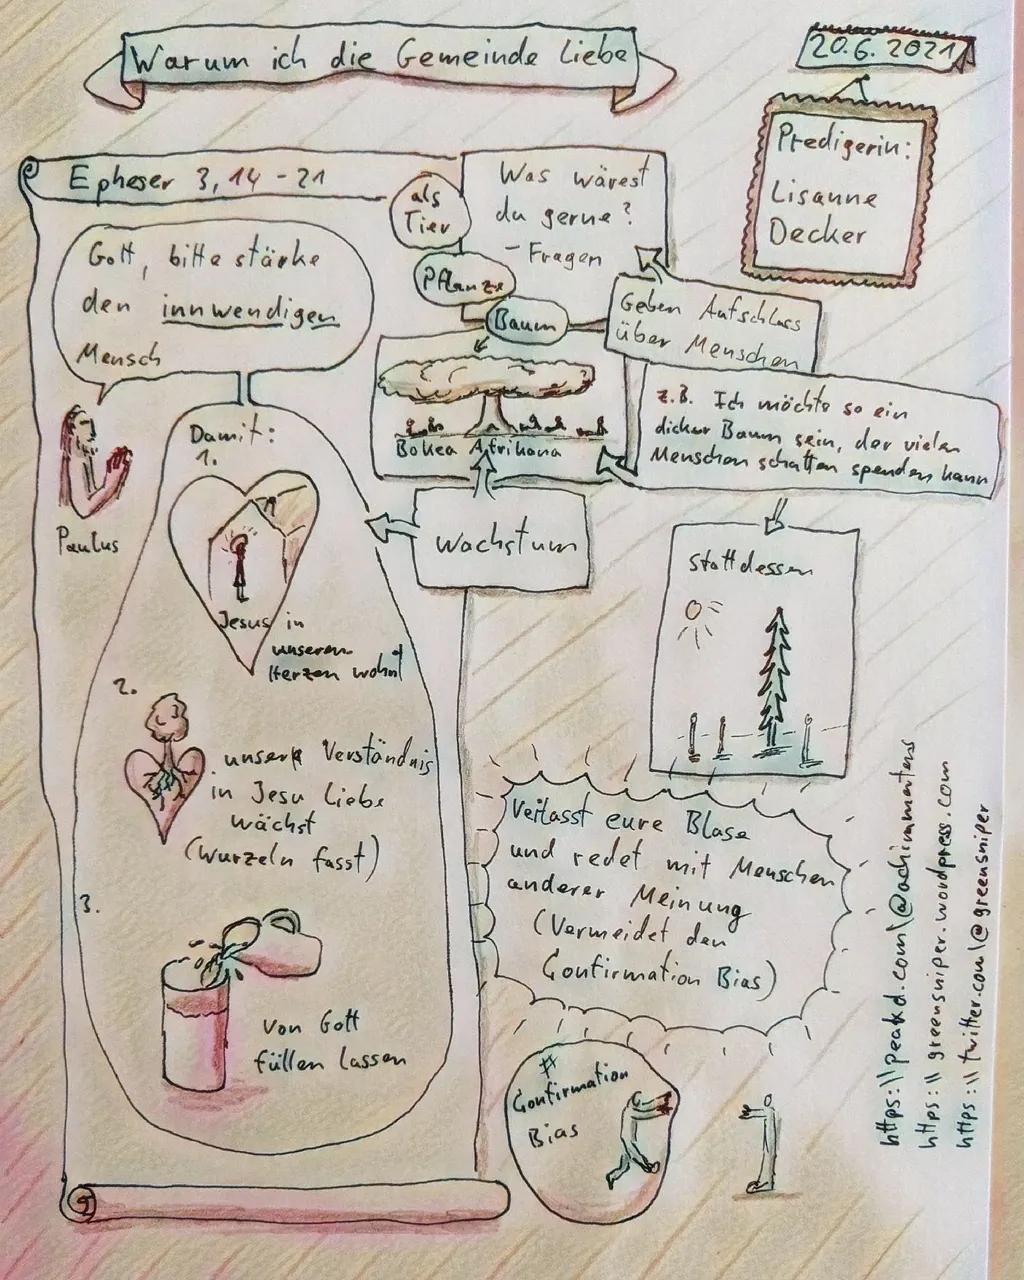 Warum ich die Gemeinde Liebe
20.6.2021
Predigerin:
Lisanne
Decker
Epheser 3, 14 - 21
als
Tier
Was wärest
du gerne?
- Fragen
Pflanze
Baum
Geben Aufschluss
über Menschen
Gott, bitte stärke
den innwendigen
Mensch
Paulus
Bokea Afrikana
z.B. Ich möchte so ein
dicker Baum sein, der vielen
Menschen schatten spenden kann
Wachstum
stattdessen
Damit:
1.
Jesus in
unseren
Herzen wohnt
2.
unsere Verständnis
in Jesu Liebe
wächst
(Wurzeln fasst)
3.
von Gott
füllen lassen
Verlasst eure Blase
und redet mit Menschen
anderer Meinung
(Vermeidet den
Confirmation Bias)
#
Confirmation
Bias
https:\\peakd.com\@achimmertens
https:\\greensniper.wordpress.com
https:\\twitter.com\@greensniper